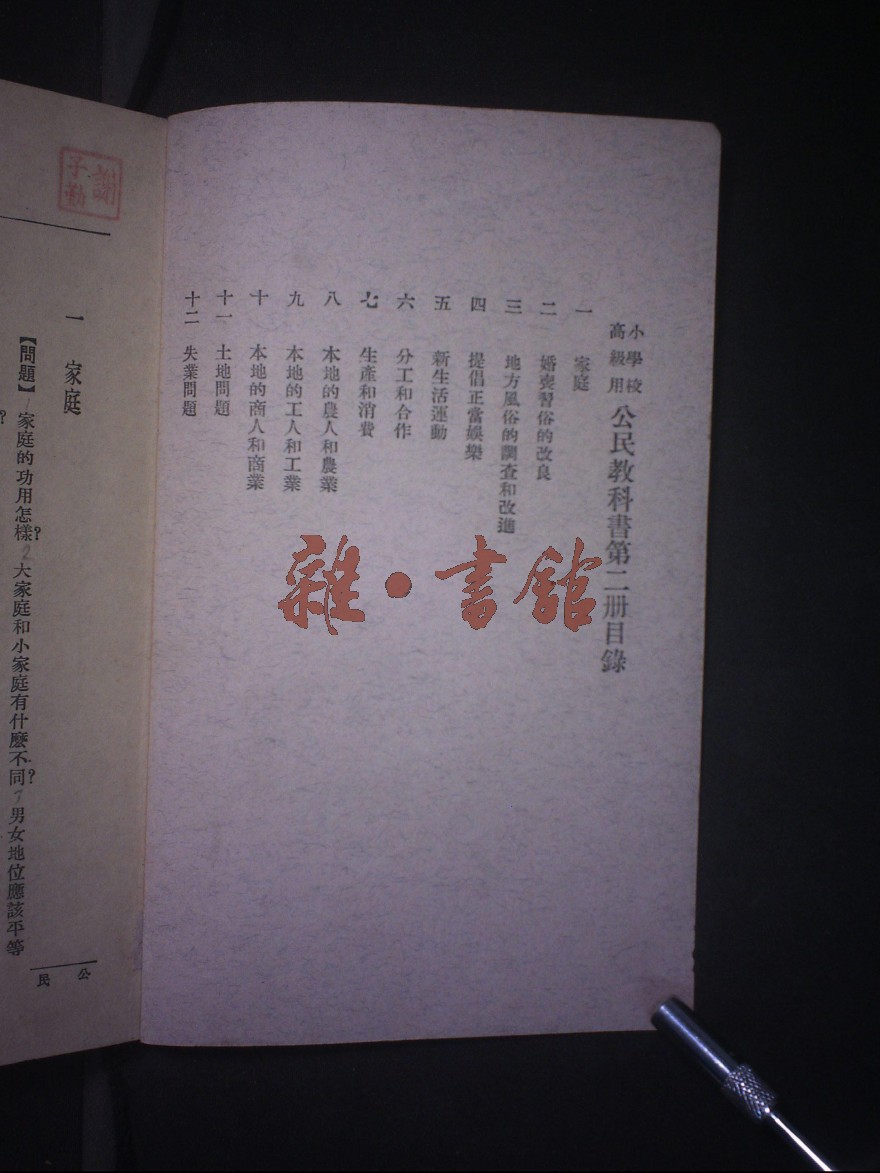 小學校
高級用
公民教科書第二册目錄
一 家庭
二 婚喪習俗的改良
三 地方風俗的調查和改進
四 提倡正當娛樂
五 新生活運動
六 分工和合作
七 生產和消費
八 本地的農人和農業
九 本地的工人和工業
十 本地的商人和商業
十一 土地問題
十二 失業問題
雜·書館
謝子勤
公民
一 家庭
【問題】 家庭的功用怎樣?2大家庭和小家庭有什麼不同?男女地位應該平等
?